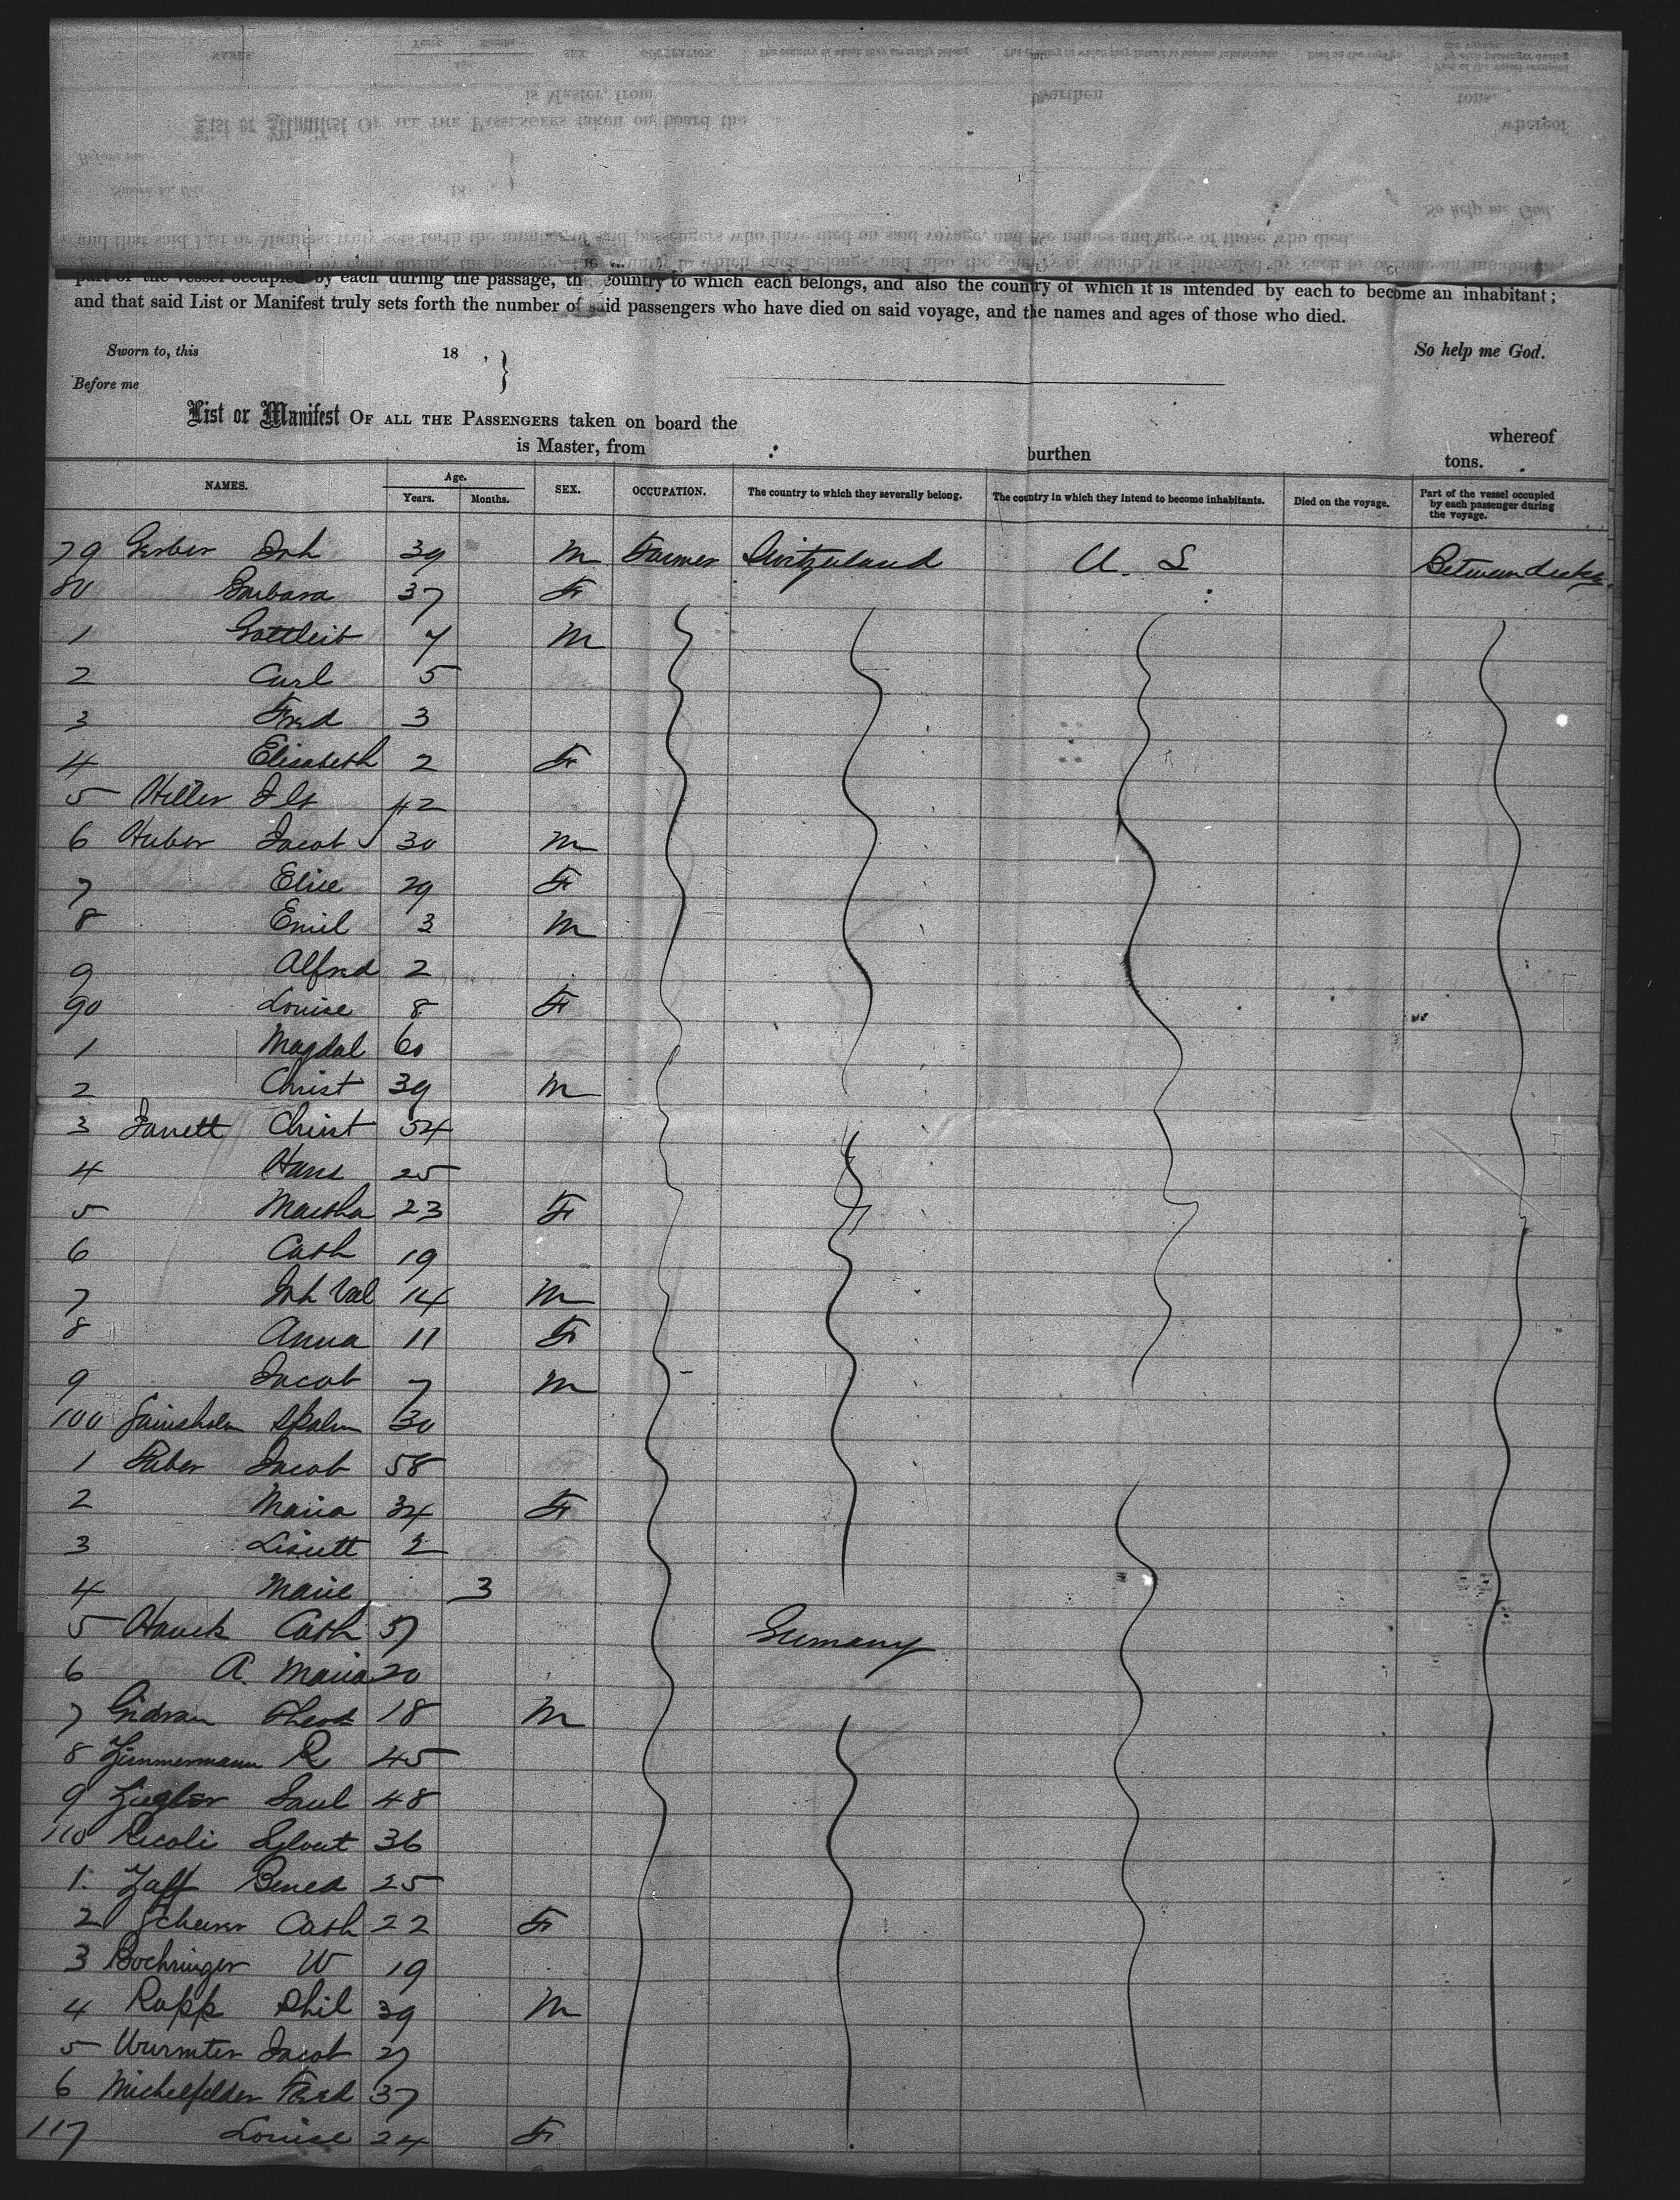 part of the vessel occupied by each during the passage, the country to which each belongs, and also the country of which it is intended by each to become an inhabitant;
and that said List or Manifest truly sets forth the number of said passengers who have died on said voyage, and the names and ages of those who died.
Sworn to, this 18 , } So help me God.
Before me
List or Manifest OF ALL THE PASSENGERS taken on board the whereof
is Master, from burthen tons.
NAMES. Age. Years. Months. SEX. OCCUPATION. The country to which they severally belong. The country in which they intend to become inhabitants. Died on the voyage. Part of the vessel occupied by each passenger during the voyage.
79 Gerber Joh 39 M Farmer Switzerland U. S Between decks
80 Barbara 37 F
1 Gottleib 7 M
2 Carl 5
3 Fred 3
4 Elisabeth 2 F
5 Hiller 42
6 Huber Jacob 30 M
7 Elise 29 F
8 Emil 3 M
9 Alfred 2
90 Louise 8 F
1 Magdal 60
2 Christ 39 M
3 Christ 54
4 Hans 25
5 Martha 23 F
6 Cath 19
7 Joh Val 14 M
8 Anna 11 F
9 Jacob 7 M
100 30
1 Jacob 58
2 Maria 34 F
3 Lisett 2
4 Marie 3
5 Hauck Cath 57 Germany
6 A. Maria 20
7 Theod 18 M
8 Zimmermann R 45
9 Ziegler Saul 48
110 36
1 Zaff Bened 25
2 Cath 22 F
3 Boehringer W 19
4 Rapp Phil 39 M
5 Jacob 27
6 Michelfelder Fred 37
117 Louise 24 F